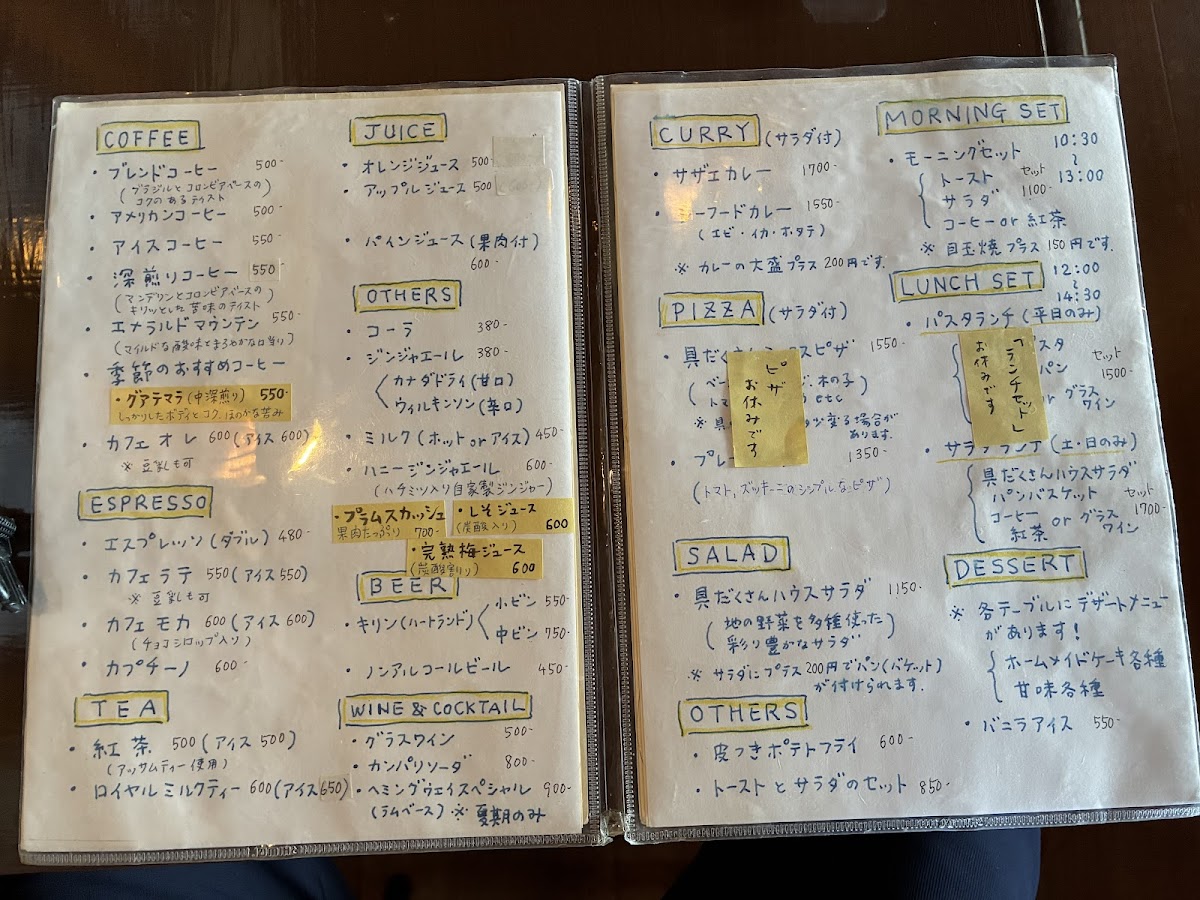 COFFEE
・ブレンドコーヒー 500-
(ブラジルとコロンビアベースの
コクのあるテイスト
・アメリカンコーヒー 500-
・アイスコーヒー 550-
・深煎りコーヒー 550
(マンデリンとコロンビアベースの
キリッとした苦味のテイスト
・エメラルドマウンテン 550-
(マイルドな酸味とまろやかな口当り)
・季節のおすすめコーヒー
・グアテマラ(中深煎り) 550-
しっかりしたボディとコク、ほのかな苦み
・カフェオレ 600(アイス600)
※豆乳も可
ESPRESSO
・エスプレッソ(ダブル) 480-
・カフェラテ 550(アイス550)
※豆乳も可
・カフェモカ 600(アイス600)
(チョコシロップ入り)
・カプチーノ 600-
TEA
・紅茶 500(アイス500)
(アッサムティー使用)
・ロイヤルミルクティー 600(アイス650)
JUICE
・オレンジジュース 500-
・アップルジュース 500
・パインジュース(果肉付)
600-
OTHERS
・コーラ 380-
・ジンジャエール 380-
カナダドライ(甘口)
ウィルキンソン(辛口)
・ミルク(ホットorアイス) 450-
・ハニージンジャエール 600-
(ハチミツ入り自家製ジンジャー)
・プラムスカッシュ
果肉たっぷり 700-
・しそジュース
(炭酸入り) 600
・完熟梅ジュース
(炭酸割り) 600
BEER
・キリン(ハートランド)
小ビン 550-
中ビン 750-
・ノンアルコールビール 450-
WINE & COCKTAIL
・グラスワイン 500-
・カンパリソーダ 800-
・ヘミングウェイスペシャル 900-
(ラムベース)・※夏期のみ
CURRY (サラダ付)
・サザエカレー 1700-
・ーフードカレー 1550-
(エビ・イカ・ホタテ)
※カレーの大盛プラス200円です。
PIZZA (サラダ付)
・具だくさん スピザ 1550-
(ベー 、木の子
トマ etc
※具 が変る場合が
あります。
・プレー 1350-
(トマト,ズッキーニのシンプルなピザ)
ピザ
お休みです
SALAD
・具だくさんハウスサラダ 1150-
(地の野菜を多種使った
彩り豊かなサラダ)
※サラダにプラス200円でパン(バケット)
が付けられます.
OTHERS
・皮つきポテトフライ 600-
・トーストとサラダのセット 850-
MORNING SET
・モーニングセット 10:30
〜
13:00
トースト
サラダ
コーヒーor紅茶
セット
1100-
※目玉焼プラス150円です.
LUNCH SET 12:00
〜
14:30
・パスタランチ(平日のみ)
スタ
パン
or グラス
ワイン
セット
1500-
「ランチセット」
お休みです
・サラダランチ(土・日のみ)
具だくさんハウスサラダ
パンバスケット
コーヒー
紅茶 or グラス
ワイン
セット
1700-
DESSERT
※各テーブルにデザートメニュー
があります!
ホームメイドケーキ各種
甘味各種
・バニラアイス 550-